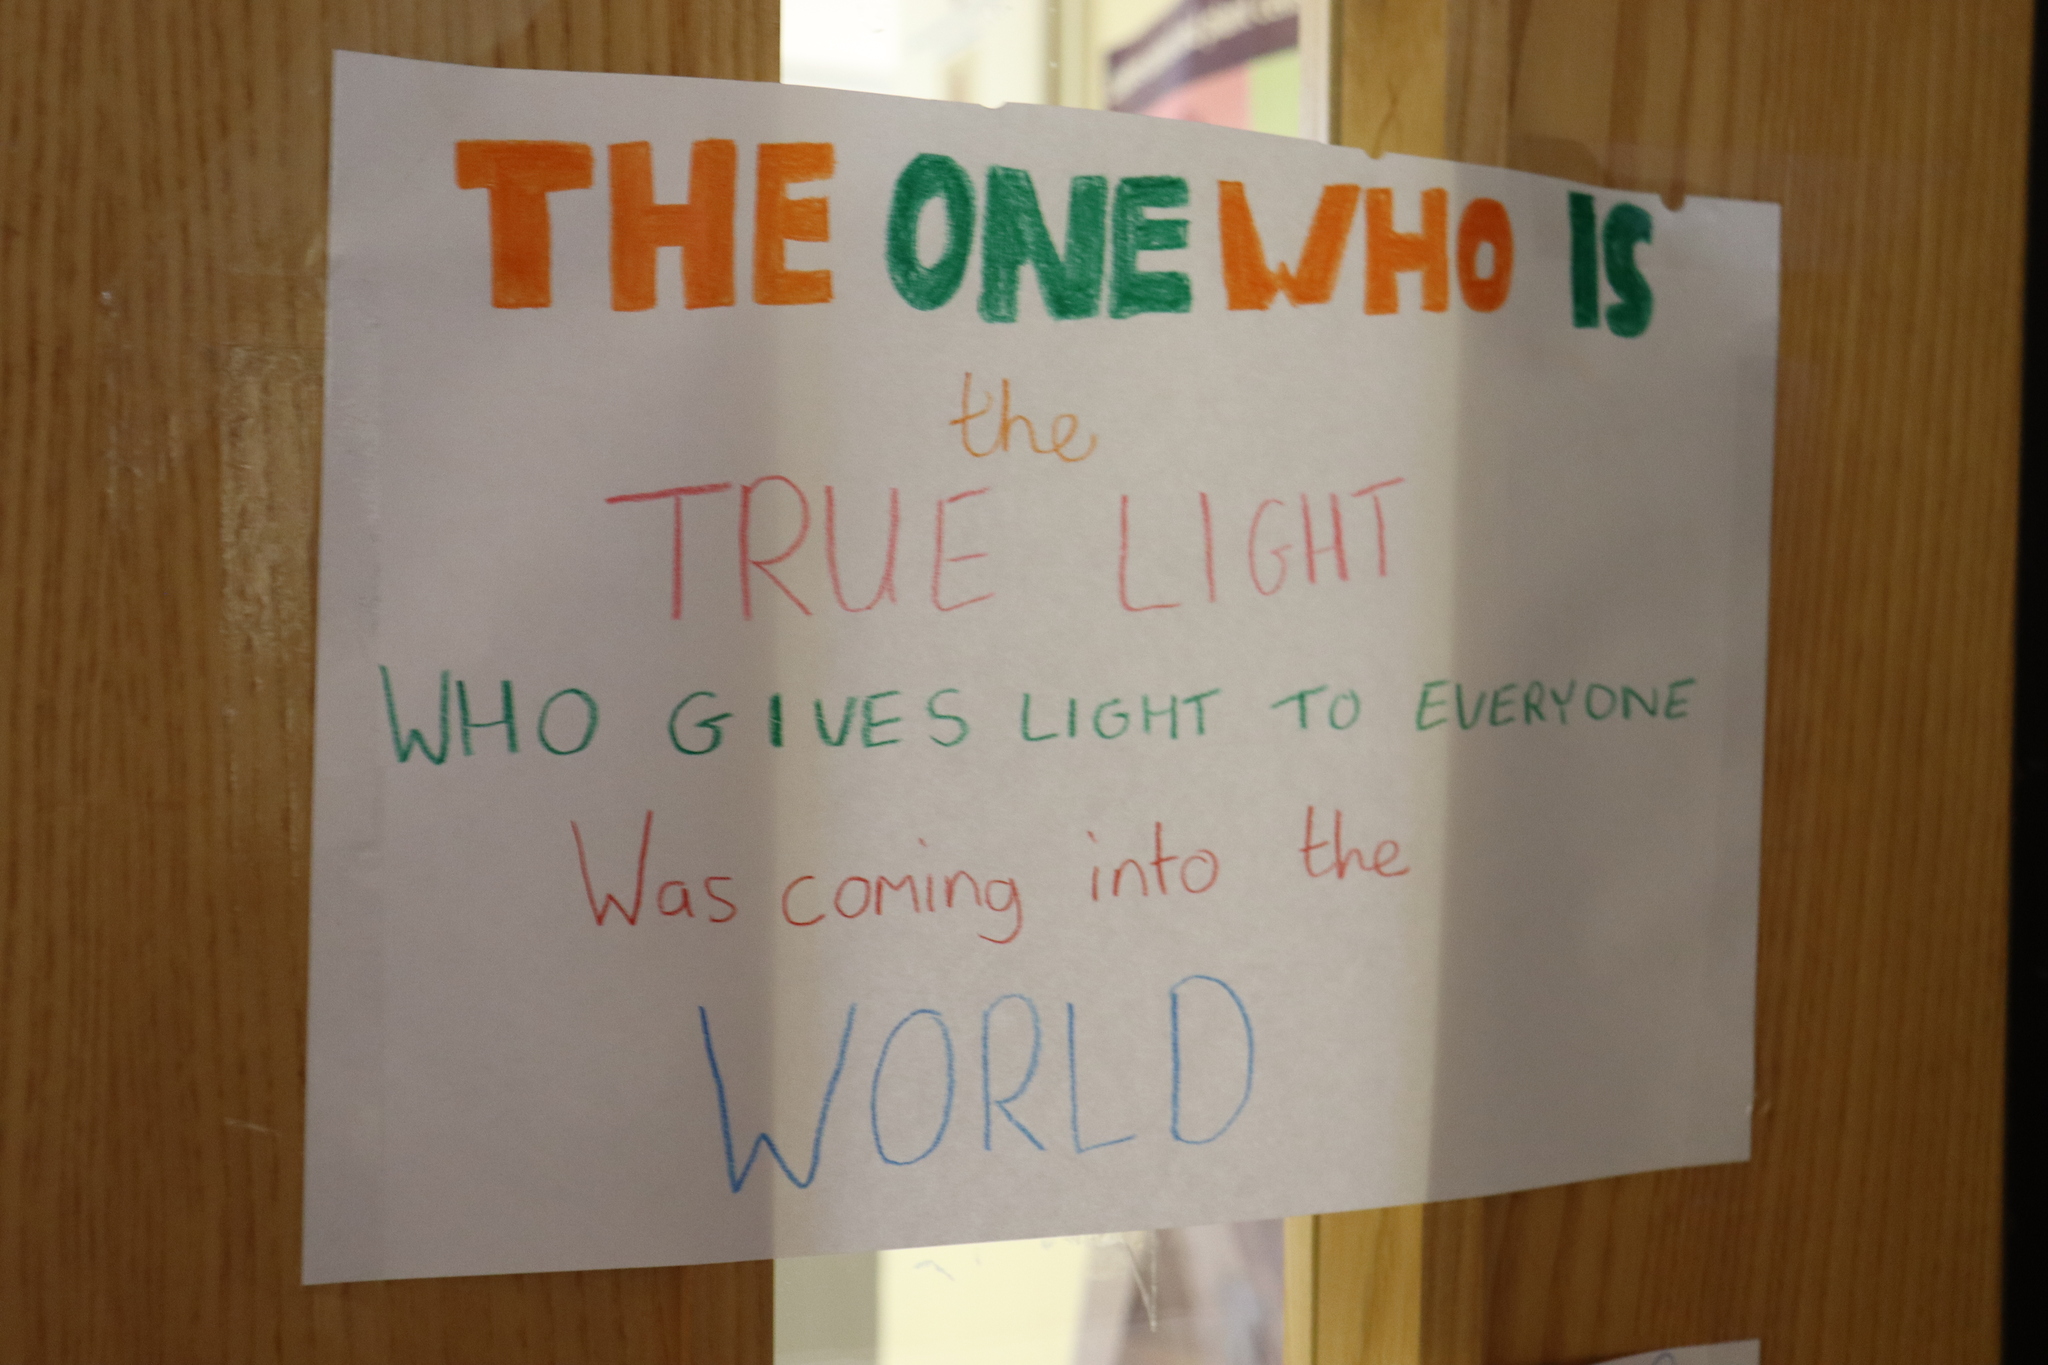 THE ONE WHO IS
the
TRUE LIGHT
WHO GIVES LIGHT TO EVERYONE
Was coming into the
WORLD